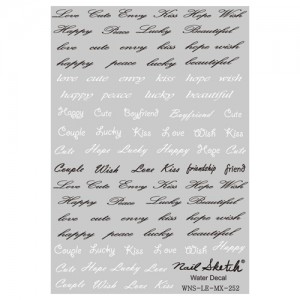 Love Cute Envy Kiss Hope Wish
Happy Peace Lucky Beautiful
love cute envy kiss hope wish
happy peace lucky beautiful
love cute envy kiss hope wish
happy peace lucky beautiful
Happy Cute Boyfriend Boyfriend Envy
Couple Lucky Kiss Love Wish Kiss
Cute Hope Happy Lucky Couple Hope
Couple Wish Love Kiss friendship friend
Love Cute Envy Kiss Hope Wish
Happy Peace Lucky Beautiful
Love Cute Envy Kiss Hope Wish
happy peace lucky beautiful
Boyfriend Couple Wish Love Kiss
Cute Hope Happy
Lucky Couple Love
Nail Sketch
Water Decal
WNS-LE-MX-252